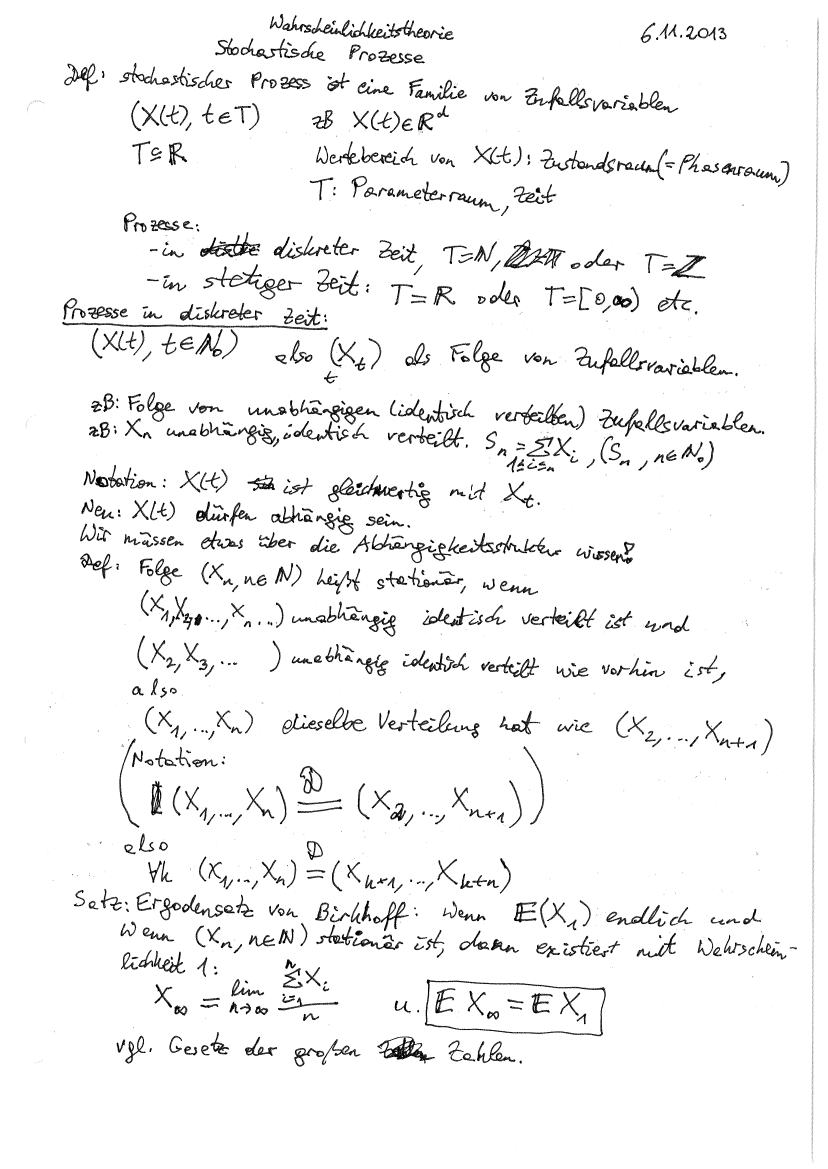 Wahrscheinlichkeitstheorie 6.11.2013
Stochastische Prozesse
Def: stochastischer Prozess ist eine Familie von Zufallsvariablen
(X(t), t∈T) zB X(t)∈ℝ^d
T⊆ℝ Wertebereich von X(t): Zustandsraum(=Phasenraum)
T: Parameterraum, Zeit
Prozesse:
-in diskreter Zeit, T=ℕ, oder T=ℤ
-in stetiger Zeit: T=ℝ oder T=[0,∞) etc.
Prozesse in diskreter Zeit:
(X(t), t∈ℕ₀) also (X_t)_t als Folge von Zufallsvariablen.
zB: Folge von unabhängigen (identisch verteilten) Zufallsvariablen.
zB: X_n unabhängig, identisch verteilt. S_n = ∑_{1≤i≤n} X_i, (S_n, n∈ℕ₀)
Notation: X(t) ist gleichwertig mit X_t.
Neu: X(t) dürfen abhängig sein.
Wir müssen etwas über die Abhängigkeitsstruktur wissen!
Def: Folge (X_n, n∈ℕ) heißt stationär, wenn
(X_1, X_2, ..., X_n ...) unabhängig identisch verteilt ist und
(X_2, X_3, ... ) unabhängig identisch verteilt wie vorhin ist,
also
(X_1, ..., X_n) dieselbe Verteilung hat wie (X_2, ..., X_{n+1})
(Notation:
(X_1, ..., X_n) =^D (X_2, ..., X_{n+1}))
also
∀k (X_1, ..., X_n) =^D (X_{k+1}, ..., X_{k+n})
Satz: Ergodensatz von Birkhoff: Wenn 𝔼(X_1) endlich und
wenn (X_n, n∈ℕ) stationär ist, dann existiert mit Wahrschein-
lichkeit 1:
X_∞ = lim_{n→∞} (∑_{i=1}^n X_i)/n u. 𝔼 X_∞ = 𝔼 X_1
vgl. Gesetz der großen Zahlen.